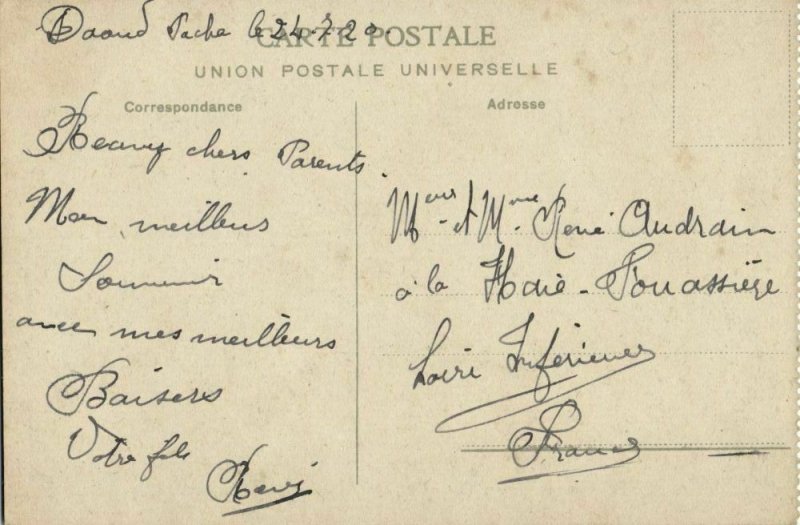 Daoud Pacha le 24-7-20.
CARTE POSTALE
UNION POSTALE UNIVERSELLE
Correspondance
chers Parents.
Mon meilleus
Souvenir
avec mes meilleurs
Baisers
Votre fils
René
Adresse
Mour et Mme René Audrain
à la Haie-Fouassiège
Loire Inférieure
France